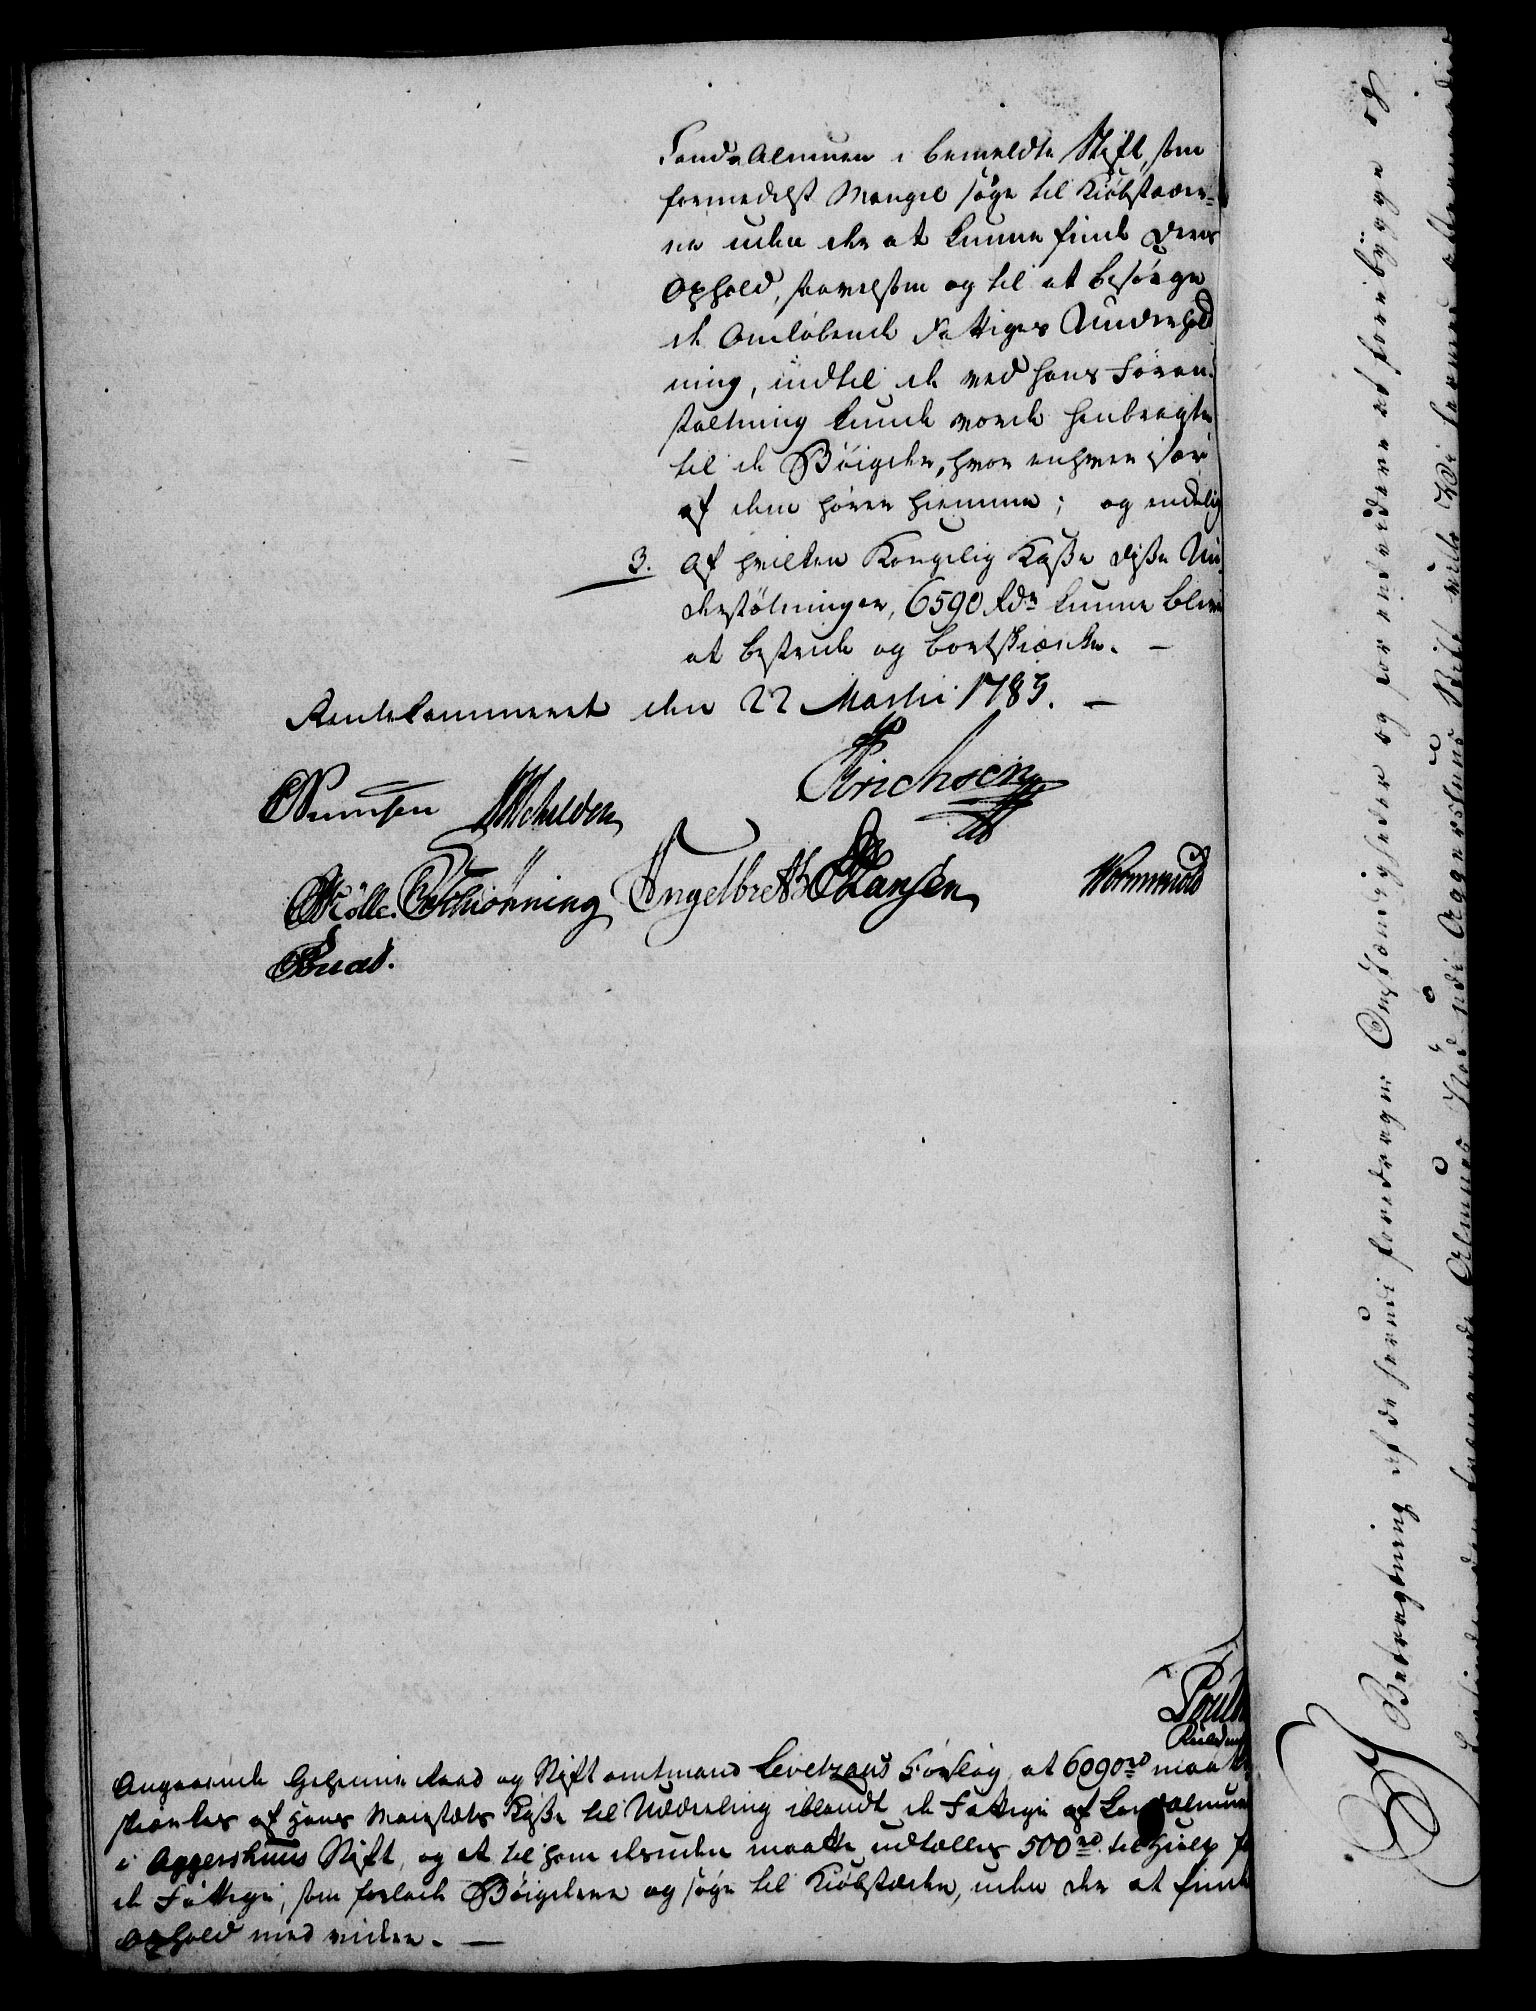 Land-Almuen i bemeldte Stift, som
formedelst Mangel søge til Kiøbstæder-
ne uden der at kunne finde deres
Ophold, saavelsom og til at besørge
de omløbende Fattiges Underhold
ning, indtil de ved hans Foran-
staltning kunde vorde henbragte
til de Bøigder, hvor enhver især
af dem hører hiemme; og endelig
3. Af hvilken Kongelig Kasse disse Un-
derstøtninger, 6590 Rdr kunne blive
at bestride og bortskienke. —
Rentekammeret den 22 Martii 1785. —
Schilden Erichsen
Mölle. Schiønning Engelbreth Hansen Wormskiold
Angaaende Geheime Raad og Stiftamtmand Levetzaus Forslag, at 6090 rd maatte
skienkes af Hans Majestæts Kasse til Uddeeling iblandt de Fattige af Landalmuen
i Aggershuus Stift, og at til ham desuden maatte udtælles 500 rd til Hielp for
de Fattige, som forlade Bøigderne og søge til Kiøbstæder, uden der at finde
Ophold med videre. —
I Betragtning af de herudi foredragne Omstændigheder og for endvidere at forebygge
den trængende Almues Nød udi Aggershuus Stift ville Vi hermed allernaadigst